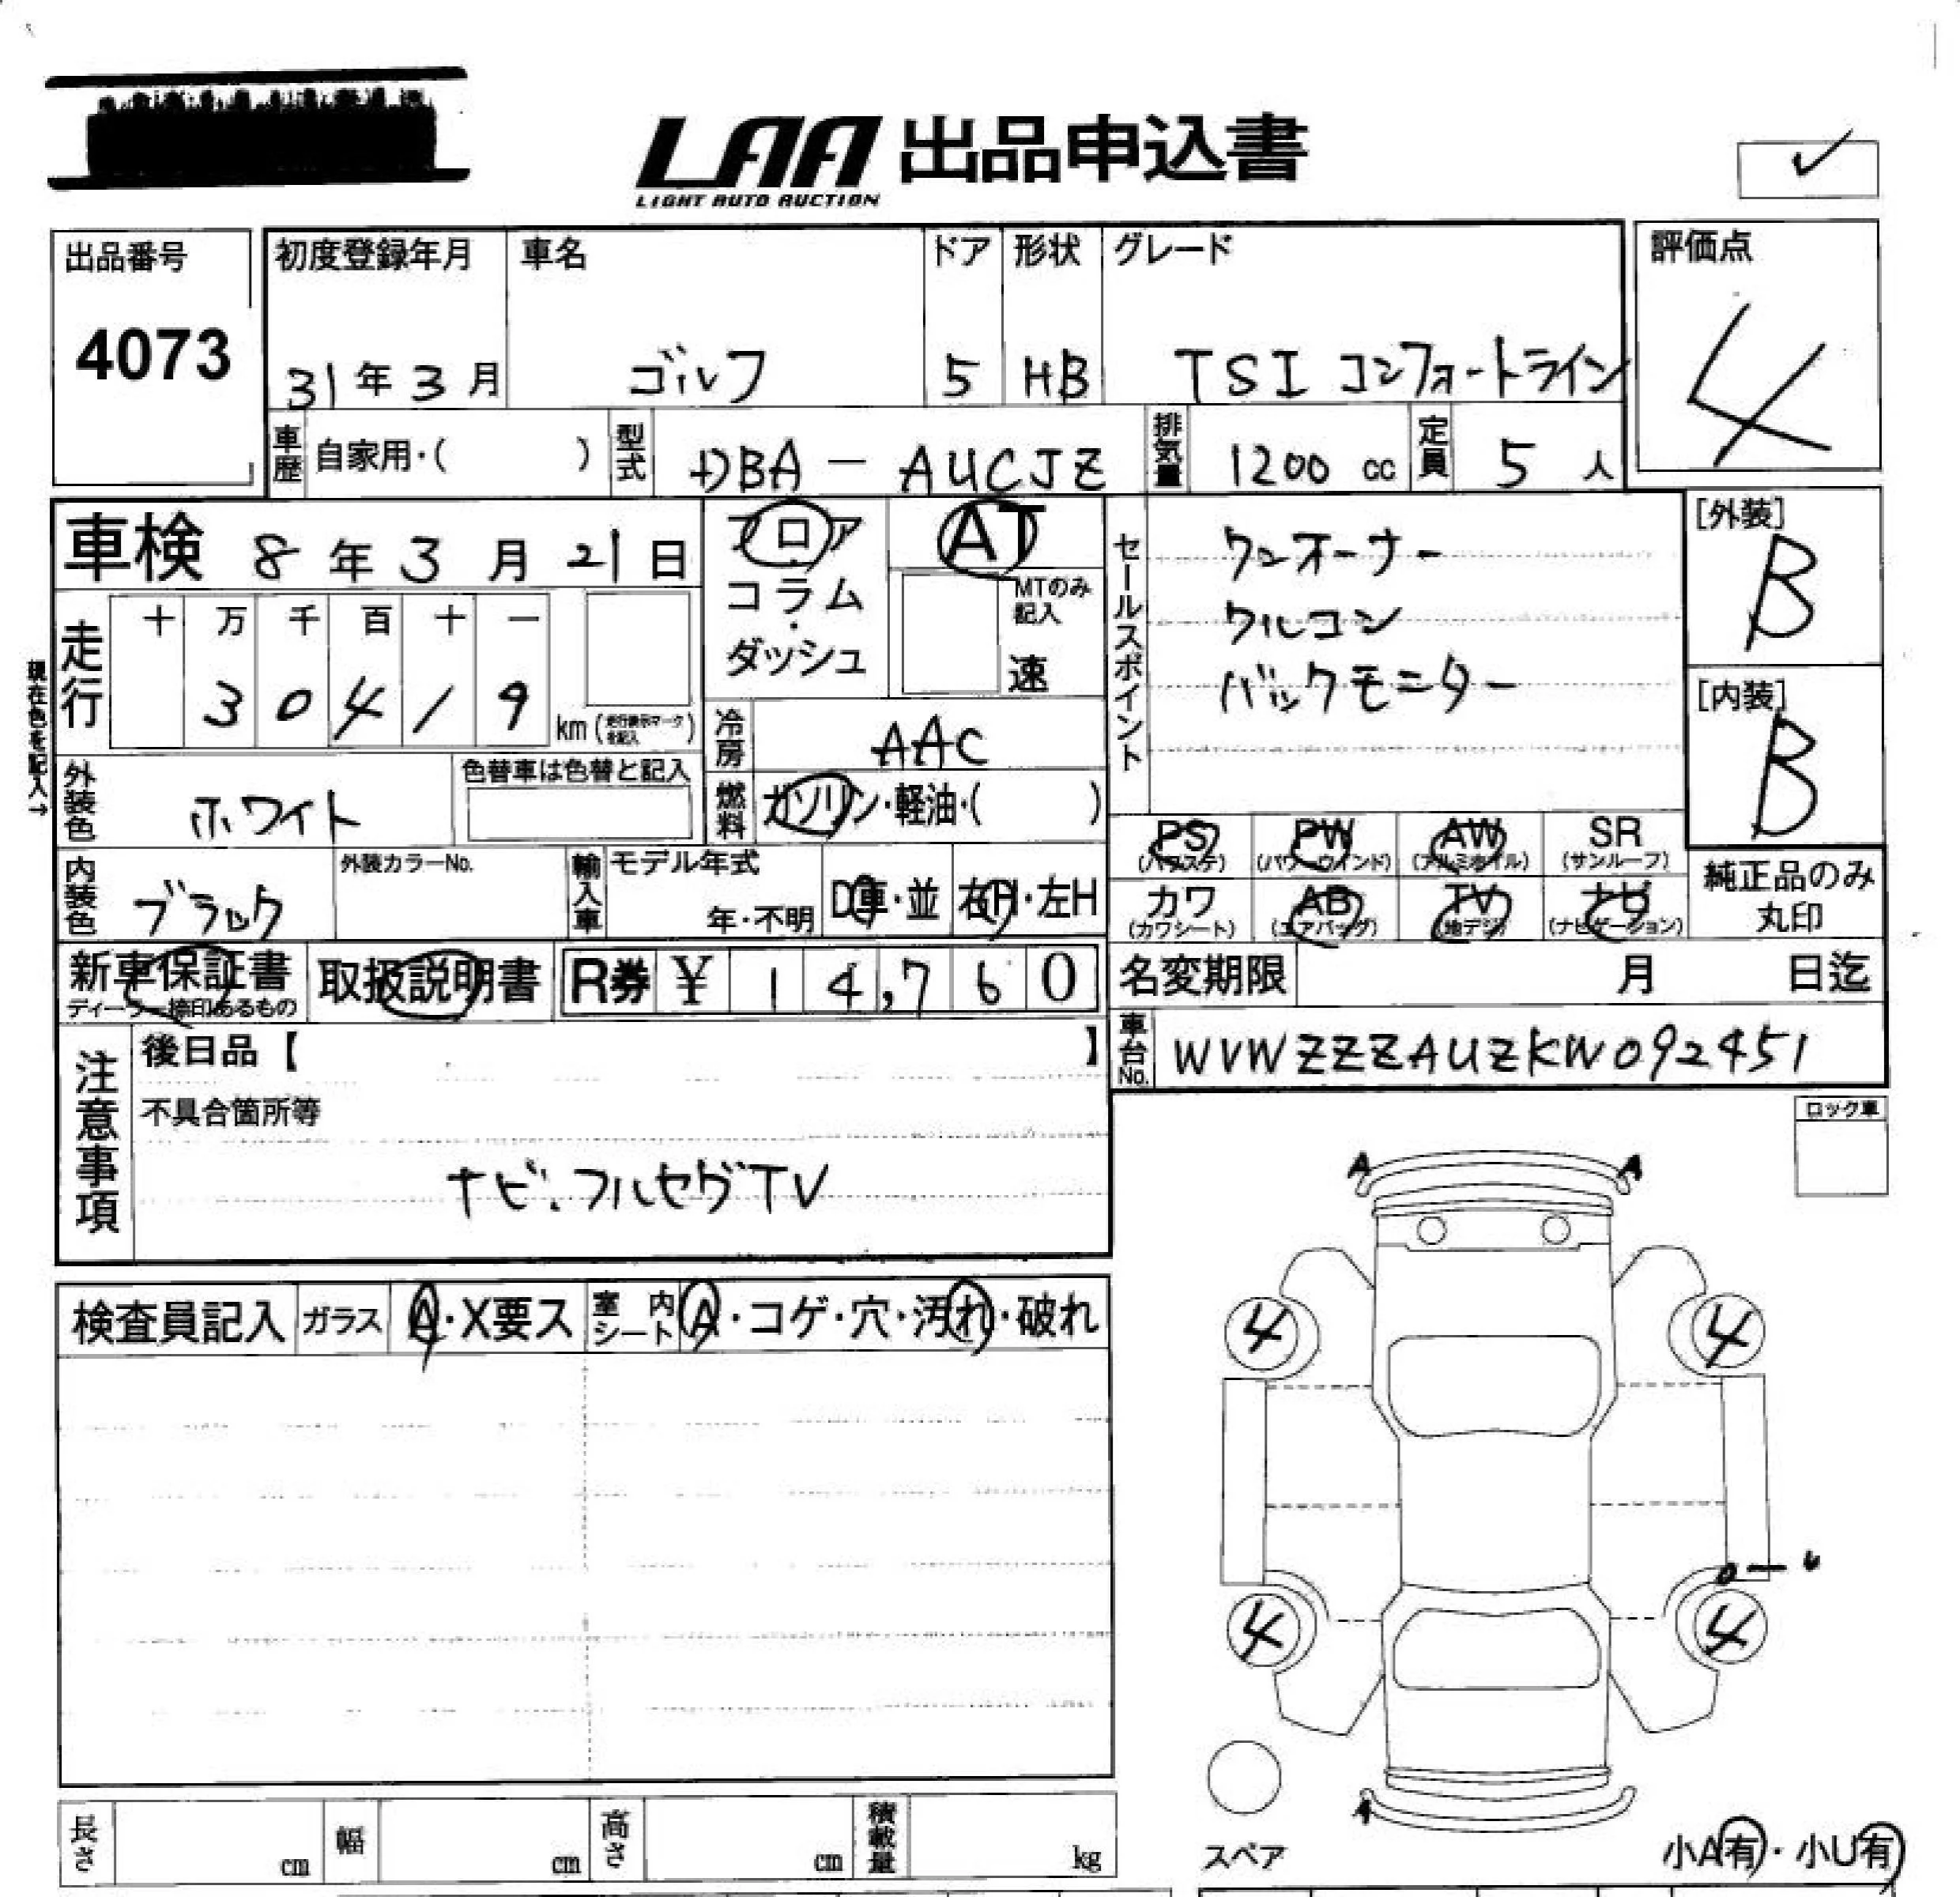 LAA 出品申込書
LIGHT AUTO AUCTION
✓
出品番号
4073
初度登録年月
31年3月
車名
ゴルフ
ドア
5
形状
HB
グレード
TSI コンフォートライン
評価点
4
車歴 自家用・( )
型式 DBA - AUCJZ
排気量 1200 cc
定員 5 人
車検 8年3月21日
フロア
コラム
ダッシュ
AT
MTのみ記入
速
セールスポイント
ワンオーナー
ワルコン
バックモニター
[外装]
B
[内装]
B
現在色を記入→
走行
十 万 千 百 十 一
3 0 4 1 9 km (走行表示マークを記入)
冷房 AAC
燃料 ガソリン・軽油・( )
外装色 ホワイト
色替車は色替と記入
内装色 ブラック
外装カラーNo.
輸入車
モデル年式
年・不明
D車・並
右H・左H
PS (パワステ)
PW (パワーウインド)
AW (アルミホイル)
SR (サンルーフ)
カワ (カワシート)
AB (エアバッグ)
TV (地デジ)
ナビ (ナビゲーション)
純正品のみ
丸印
新車保証書
ディーラー捺印あるもの
取扱説明書
R券 ¥ 14,760
名変期限 月 日迄
車台No. WVWZZZAUZKW092451
注意事項
後日品【 】
不具合箇所等
ナビ.フルセグTV
ロック車
検査員記入
ガラス A・X要ス
室内シート A・コゲ・穴・汚れ・破れ
A A
4 4
4 4
A
スペア
小A有・小U有
長さ cm
幅 cm
高さ cm
積載量 kg